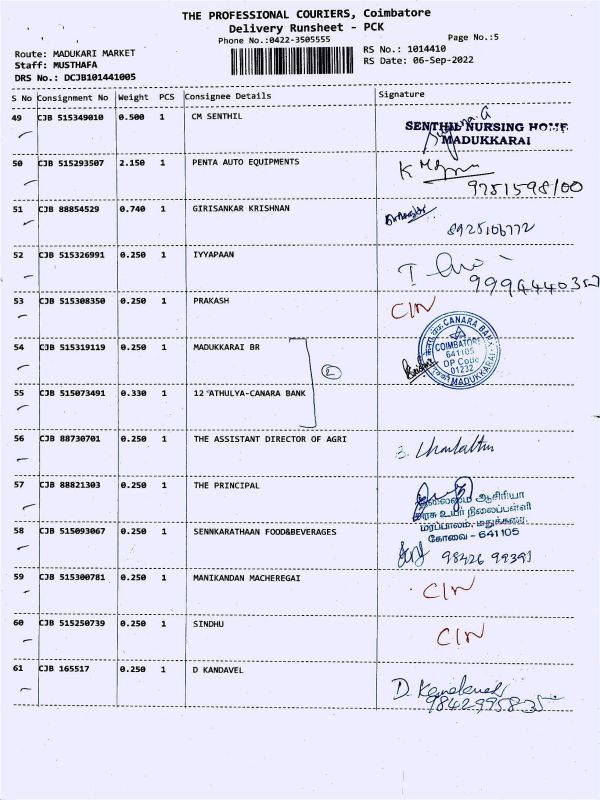 THE PROFESSIONAL COURIERS, Coimbatore
Delivery Runsheet - PCK
Phone No.:0422-3505555
Page No.:5
Route: MADUKARI MARKET
RS No.: 1014410
Staff: MUSTHAFA
RS Date: 06-Sep-2022
DRS No.: DCJB101441005
S No Consignment No Weight PCS Consignee Details Signature
49 CJB 515349010 0.500 1 CM SENTHIL
SENTHIL NURSING HOME
MADUKKARAI
50 CJB 515293507 2.150 1 PENTA AUTO EQUIPMENTS
9251598100
51 CJB 88854529 0.740 1 GIRISANKAR KRISHNAN
8925106772
52 CJB 515326991 0.250 1 IYYAPAAN
53 CJB 515308350 0.250 1 PRAKASH CIN
54 CJB 515319119 0.250 1 MADUKKARAI BR
2
CANARA BANK
COIMBATORE
641105
DP Code
01232
MADUKKARAI
55 CJB 515073491 0.330 1 12 ATHULYA-CANARA BANK
56 CJB 88730701 0.250 1 THE ASSISTANT DIRECTOR OF AGRI
57 CJB 88821303 0.250 1 THE PRINCIPAL
தலைமை ஆசிரியர்
அரசு உயர் நிலைப்பள்ளி
மரப்பாலம், மதுக்கரை
கோவை - 641105
58 CJB 515093067 0.250 1 SENNKARATHAAN FOOD&BEVERAGES
98426 99391
59 CJB 515300781 0.250 1 MANIKANDAN MACHEREGAI CIN
60 CJB 515250739 0.250 1 SINDHU CIN
61 CJB 165517 0.250 1 D KANDAVEL
D. Kandavel
9842995835